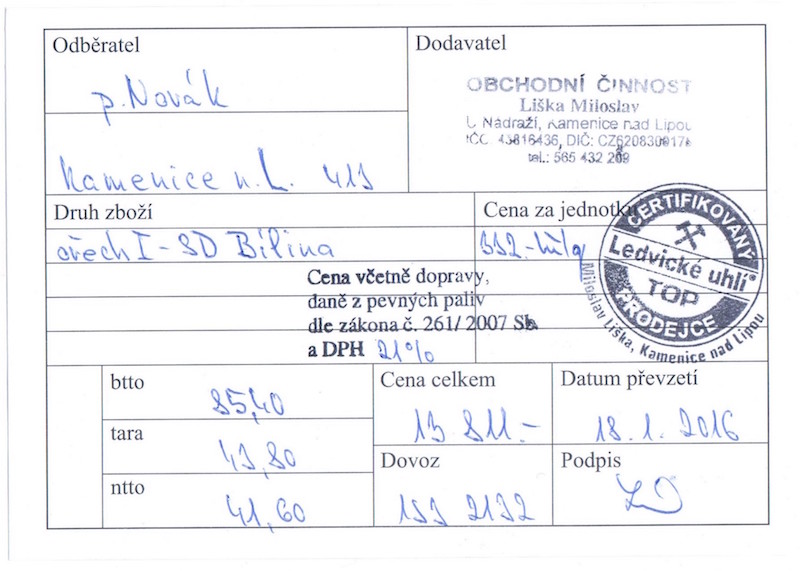 Odběratel
p. Novák
Kamenice n. L. 413
Dodavatel
OBCHODNÍ ČINNOST
Liška Miloslav
Nádraží, Kamenice nad Lipou
DIČ:
tel.: 565 432
Druh zboží
ořech I - SD Bílina
Cena za jednotku
332.-
Cena včetně dopravy,
daně z pevných paliv
dle zákona č. 261/ 2007 Sb.
a DPH 21%
CERTIFIKOVANÝ
Ledvické uhlí
TOP
PRODEJCE
Miloslav Liška, Kamenice nad Lipou
btto
85,40
tara
43,80
ntto
41,60
Cena celkem
13 811.-
Datum převzetí
18.1.2016
Dovoz
1S3 2132
Podpis